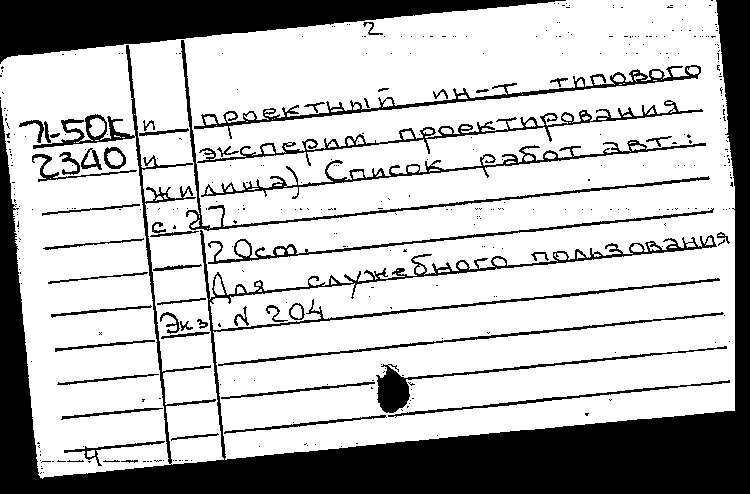 2
71-50Б и проектный ин-т типового
2340 и эксперим. проектирования
жилища) Список работ авт.:
с. 27.
20 см.
Для служебного пользования
Экз. N 204
4